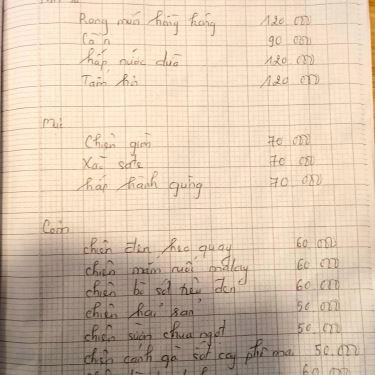 Rang muối hồng kông 120 000
Cồn 90 000
hấp nước dừa 120 000
Tầm 120 000
Mực
Chiên giòn 70 000
Xào sate 70 000
hấp hành gừng 70 000
Cơm
chiên đen heo quay 60.000
chiên mắm ruốc malay 60.000
chiên bò sốt tiêu đen 60.000
chiên hải sản 50.000
chiên sườn chua ngọt 50.000
chiên cánh gà sốt cay phô mai 50.000
60.000